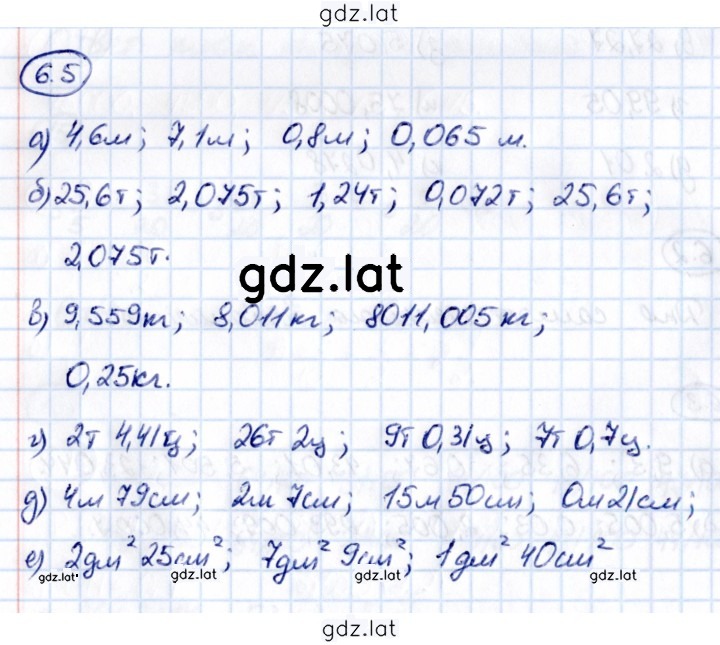 gdz.lat
6.5
а) 4,6м; 7,1м; 0,8м; 0,065 м.
б) 25,6т; 2,075т; 1,24т; 0,072т; 25,6т;
2,075т.
gdz.lat
в) 9,559кг; 8,011кг; 8011,005кг;
0,25кг.
г) 2т 4,41ц; 26т 2ц; 9т 0,31ц; 7т 0,7ц.
д) 4м 79см; 2м 7см; 15м 50см; 0м 21см;
е) 2дм² 25см²; 7дм² 9см²; 1дм² 40см²
gdz.lat gdz.lat gdz.lat gdz.lat
gdz.lat